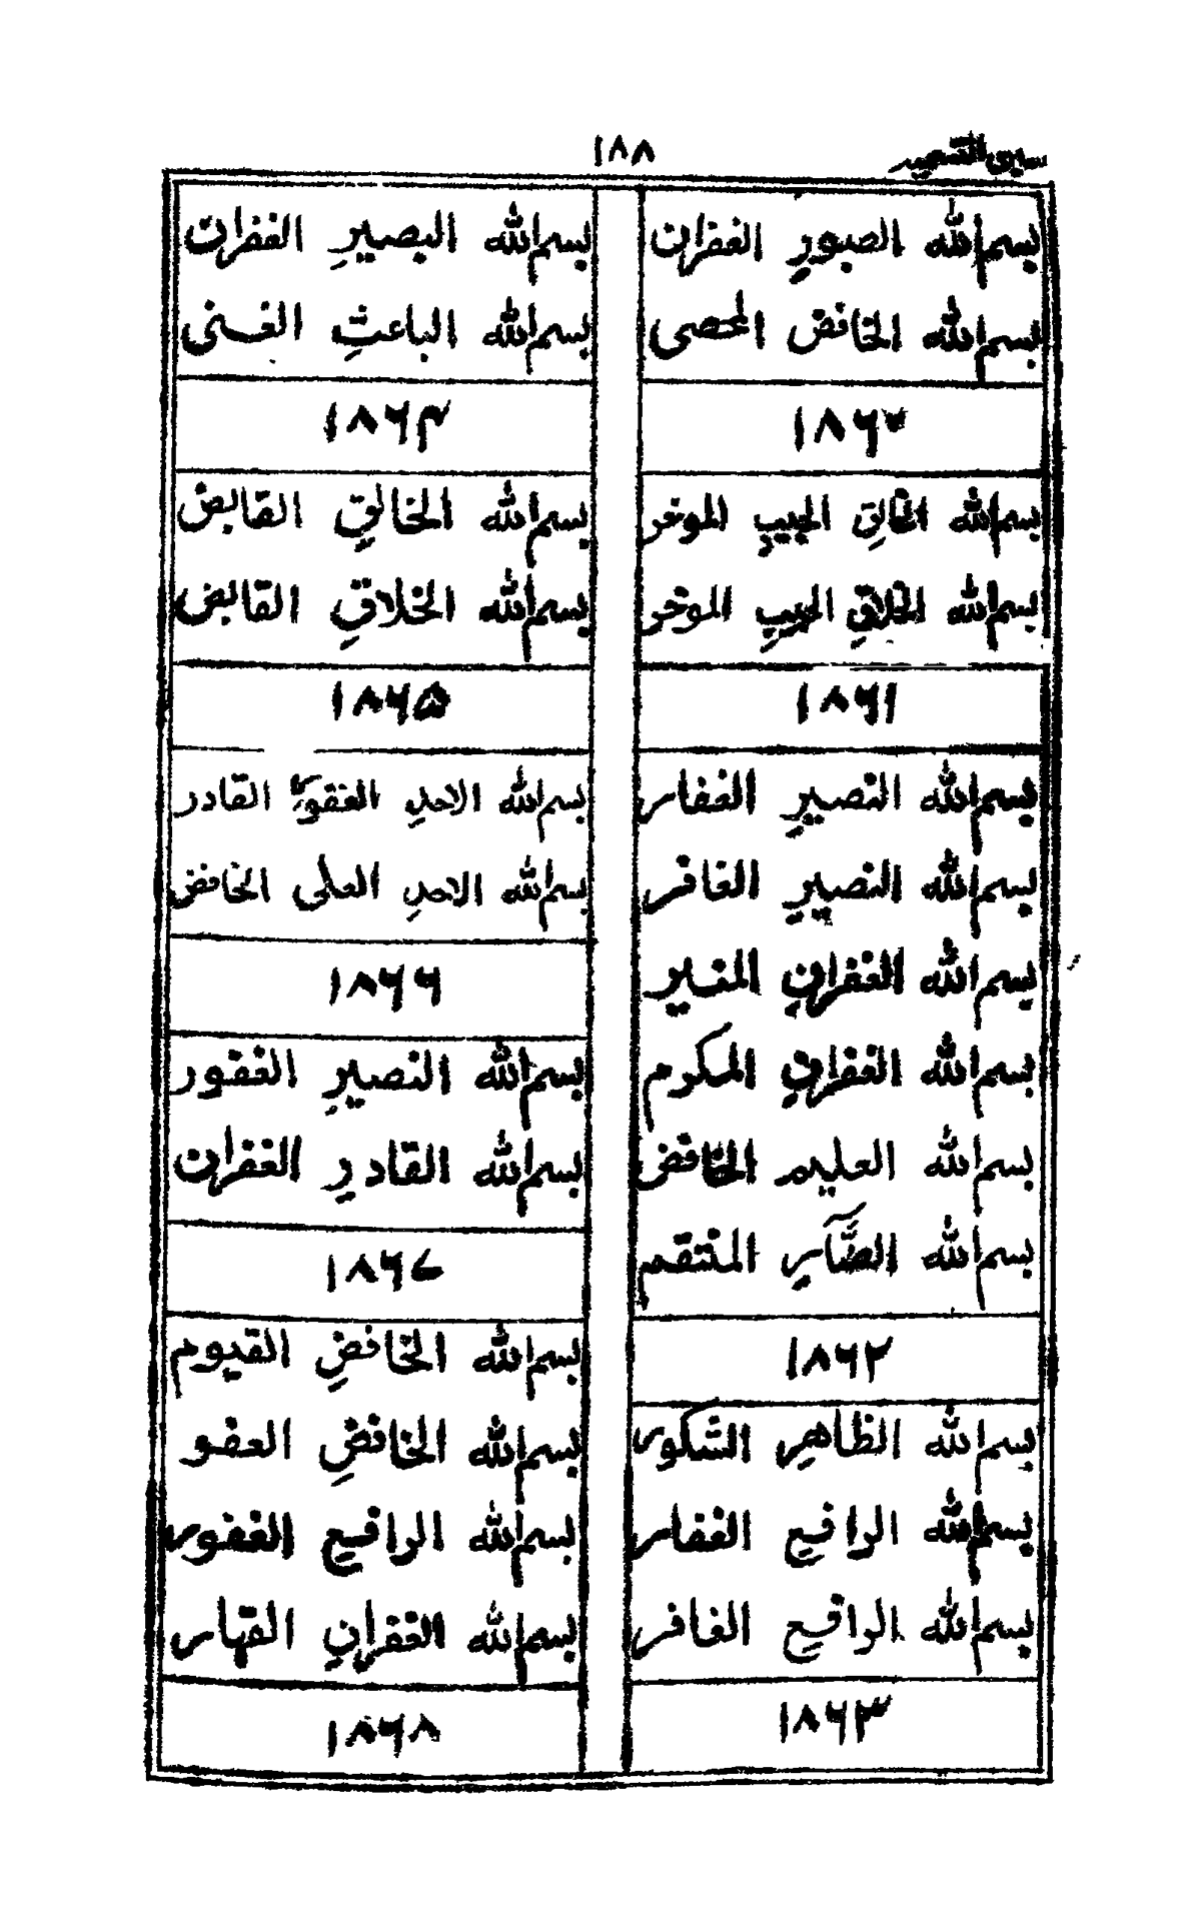 ١٨٨
بسم الله الصبورِ الغفران
بسم الله الخافض المحصى
١٨٦٠
بسم الله الخالقِ الحبيبِ الموخر
بسم الله الخلاقِ الحبيبِ الموخر
١٨٦١
بسم الله النصيرِ الغفار
بسم الله النصيرِ الغافر
بسم الله الغفرانِ المنير
بسم الله الغفرانِ المكرم
بسم الله العليم الخافض
بسم الله الضَّآرِ المنتقم
١٨٦٢
بسم الله الظاهرِ الشكور
بسم الله الرافعِ الغفار
بسم الله الرافعِ الغافر
١٨٦٣
بسم الله البصيرِ الغفران
بسم الله الباعثِ الغنى
١٨٦۴
بسم الله الخالقِ القابض
بسم الله الخلاقِ القابض
١٨٦۵
بسم الله الاحدِ الغفور القادر
بسم الله الاحدِ العلى الخافض
١٨٦٦
بسم الله النصيرِ الغفور
بسم الله القادرِ الغفران
١٨٦٧
بسم الله الخافضِ القيوم
بسم الله الخافضِ العفو
بسم الله الرافعِ الغفور
بسم الله الغفرانِ القهار
١٨٦٨